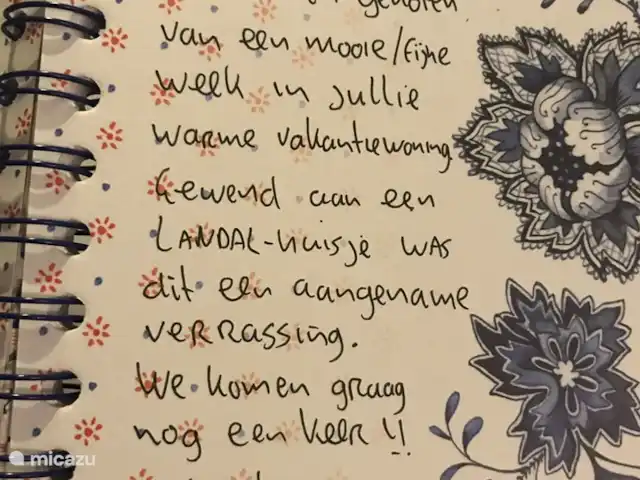 genoten
van een mooie/fijne
week in jullie
warme vakantiewoning
Gewend aan een
LANDAL-huisje was
dit een aangename
verrassing.
We komen graag
nog een keer !!
micazu